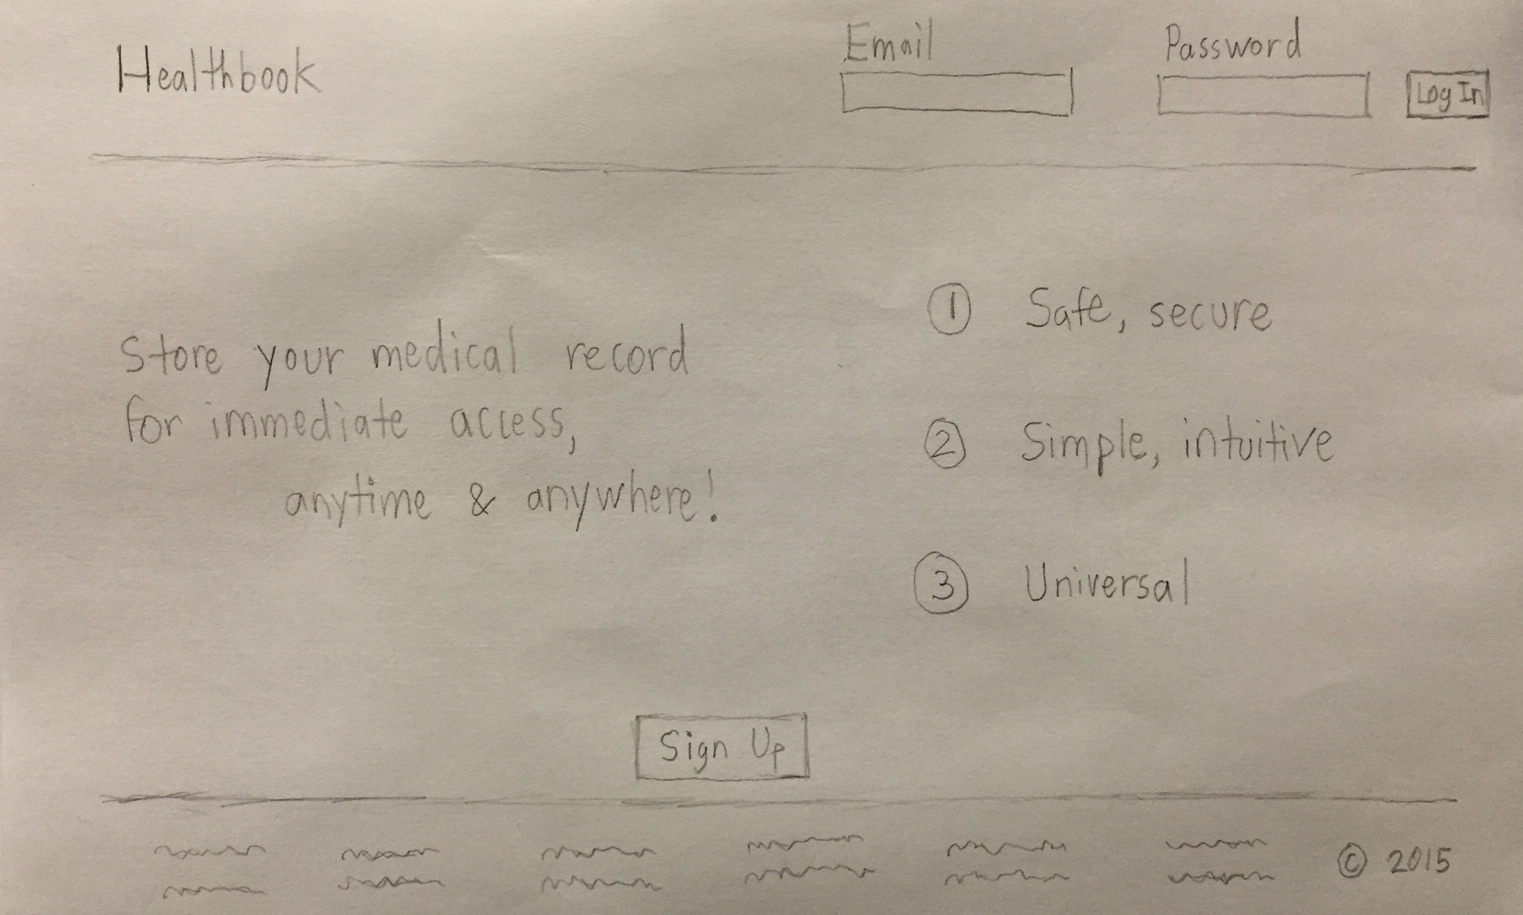 Healthbook
Email
Password
Log In
Store your medical record
for immediate access,
anytime & anywhere!
① Safe, secure
② Simple, intuitive
③ Universal
Sign Up
© 2015